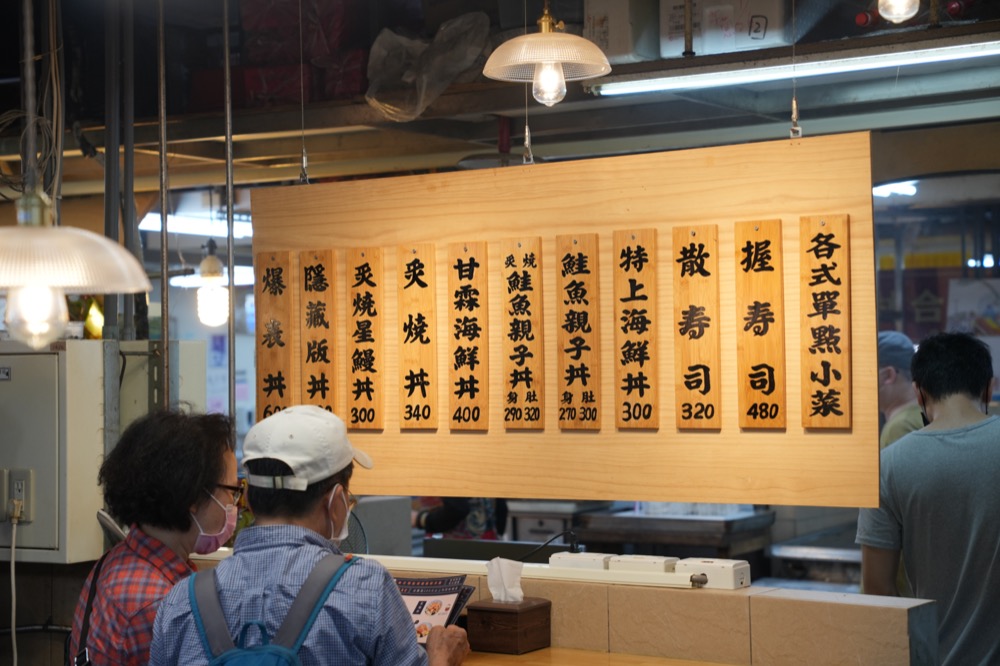 各式單點小菜
握壽司
480
散壽司
320
特上海鮮丼
300
鮭魚親子丼
身 肚
270 300
炙燒
鮭魚親子丼
身 肚
290 320
甘霖海鮮丼
400
炙燒丼
340
炙燒星鰻丼
300
隱藏版丼
爆裝丼
2